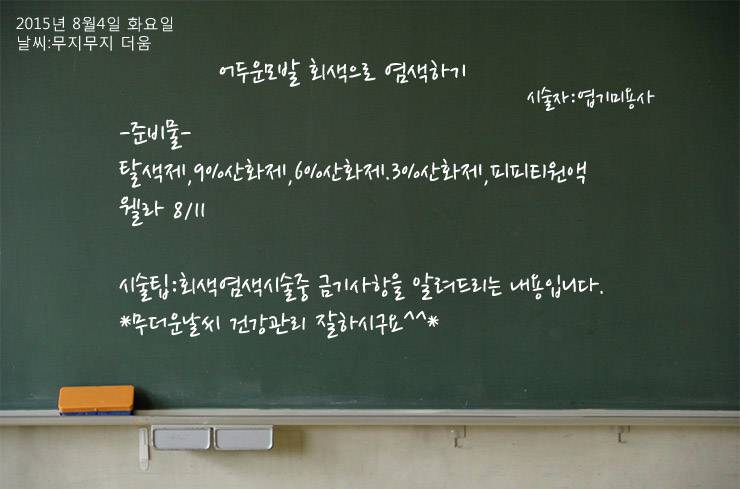 2015년 8월4일 화요일
날씨:무지무지 더움
어두운모발 회색으로 염색하기
시술자:엽기미용사
-준비물-
탈색제,9%산화제,6%산화제.3%산화제,피피티원액
웰라 8/11
시술팁:회색염색시술중 금기사항을 알려드리는 내용입니다.
*무더운날씨 건강관리 잘하시구요^^*